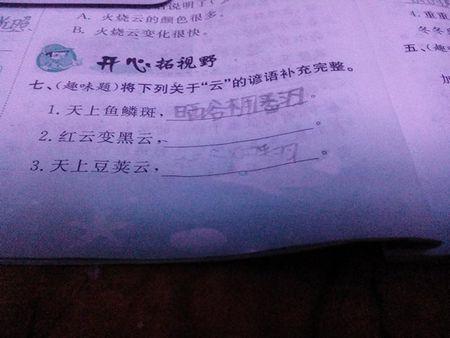 说明了
A. 火烧云的颜色很多。
B. 火烧云变化很快。
4. 重重
冬冬
开心拓视野
五、(趣
七、(趣味题)将下列关于“云”的谚语补充完整。
1. 天上鱼鳞斑，晒谷
2. 红云变黑云，。
3. 天上豆荚云，。